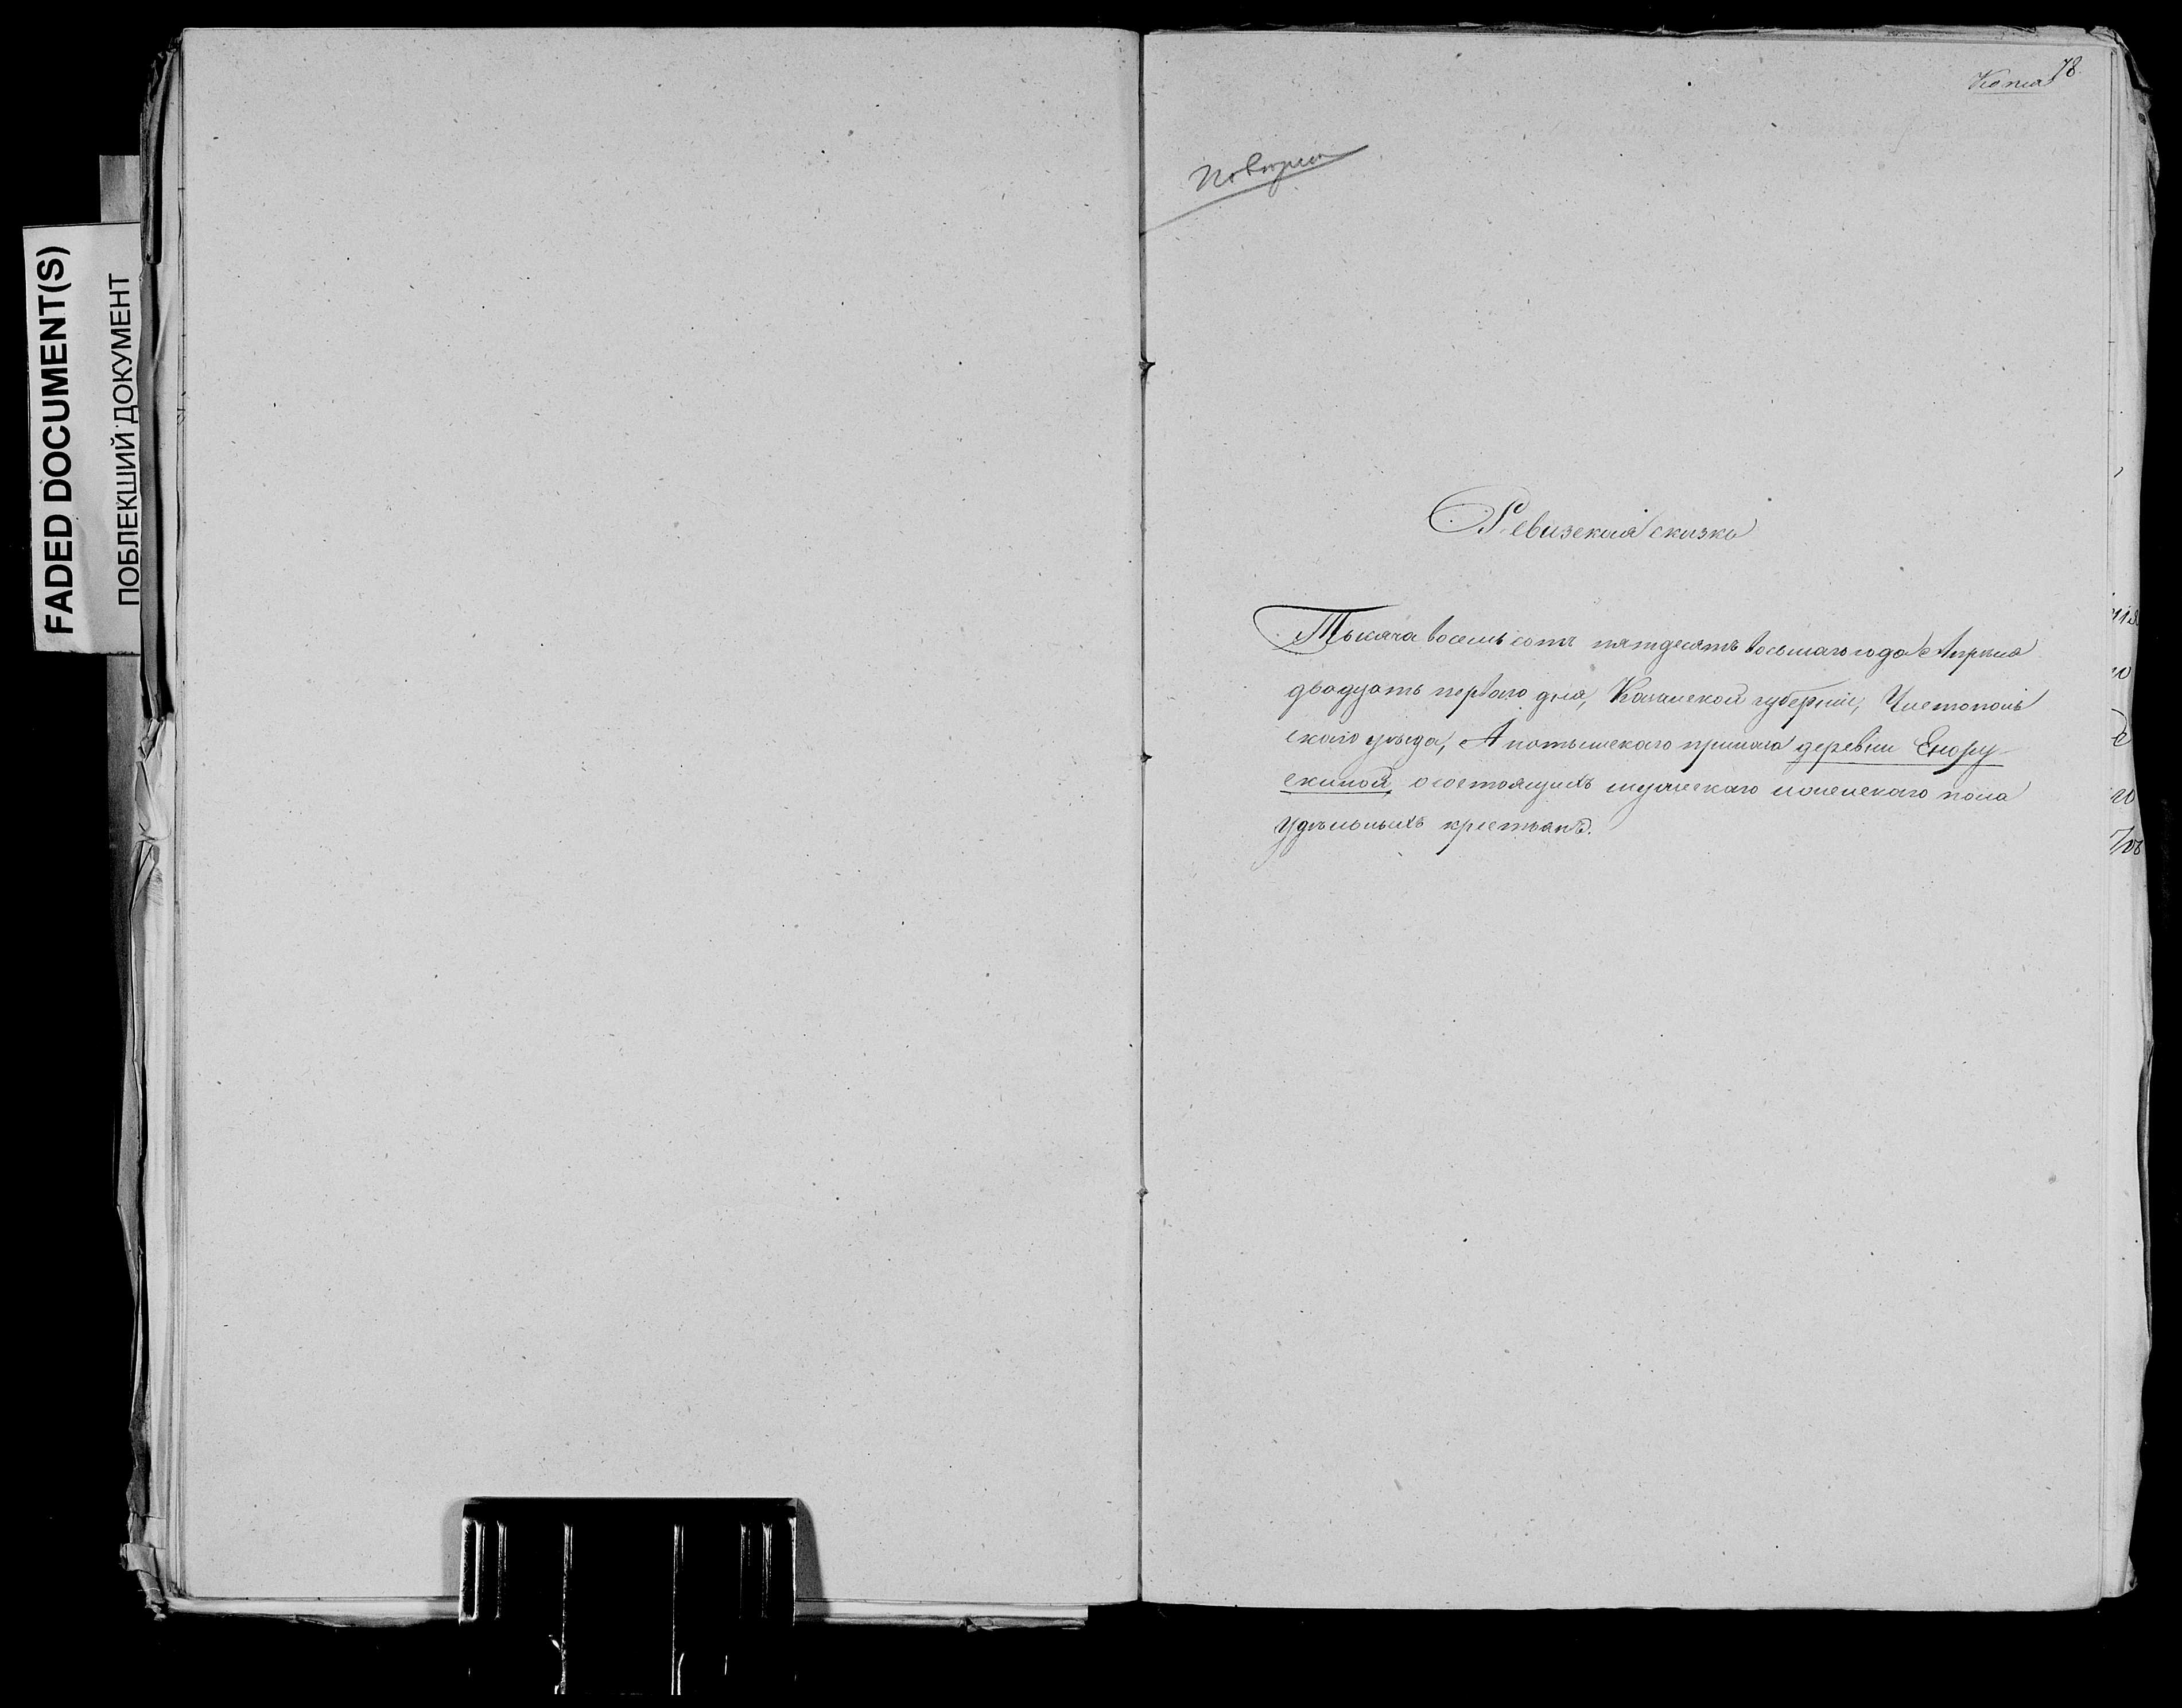 FADED DOCUMENT(S)
ПОБЛЕКШИЙ ДОКУМЕНТ
78
Копия
Ревизская сказка
Тысяча восемь сотъ пятдесятъ восьмаго года Апрѣля
двадцать перваго дня, Казанской губернiи, Чистополь
скаго уѣзда, приказа деревни
скиной, о состоящихъ мужескаго и женскаго пола
удѣльныхъ крестьянъ.